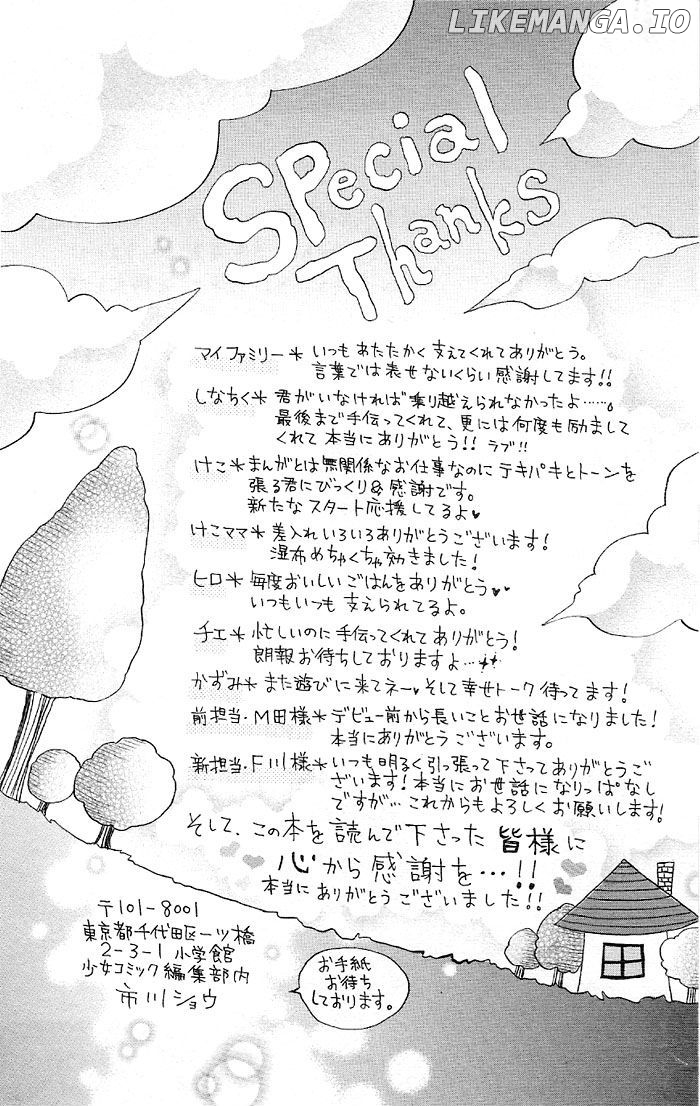 LIKEMANGA.IO
Special
Thanks
マイファミリー* いつもあたたかく支えてくれてありがとう。
言葉では表せないくらい感謝してます!!
しなちく* 君がいなければ乗り越えられなかったよ……。
最後まで手伝ってくれて、更には何度も励まして
くれて本当にありがとう!! ラブ!!
けこ* まんがとは無関係なお仕事なのにテキパキとトーンを
張る君にびっくり&感謝です。
新たなスタート応援してるよ♥
けこママ* 差入れいろいろありがとうございます!
湿布めちゃくちゃ効きました!
ヒロ* 毎度おいしいごはんをありがとう♥♥
いつもいつも支えられてるよ。
チエ* 忙しいのに手伝ってくれてありがとう!
朗報お待ちしておりますよ…
かずみ* また遊びに来てネー♥そして幸せトーク待ってます!
前担当・M田様* デビュー前から長いことお世話になりました!
本当にありがとうございます。
新担当・F川様* いつも明るく引っ張って下さってありがとうご
ざいます!本当にお世話になりっぱなし
ですが…これからもよろしくお願いします!
そして、この本を読んで下さった皆様に
心から感謝を…!!
本当にありがとうございました!!
〒101-8001
東京都千代田区一ツ橋
2-3-1 小学館
少女コミック編集部内
市川ショウ
お手紙
お待ち
しております。